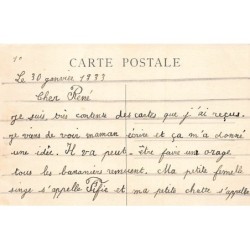 CARTE POSTALE
Le 30 janvier 1933
Cher René
je suis très contents des cartes que j'ai reçus.
je viens de voir maman écrire et ça m'a donné
une idée. Il va peut-être faire un orage
tous les bananiers remuent. Ma petite femelle
singe s'appelle Fifie et ma petite chatte s'appelle